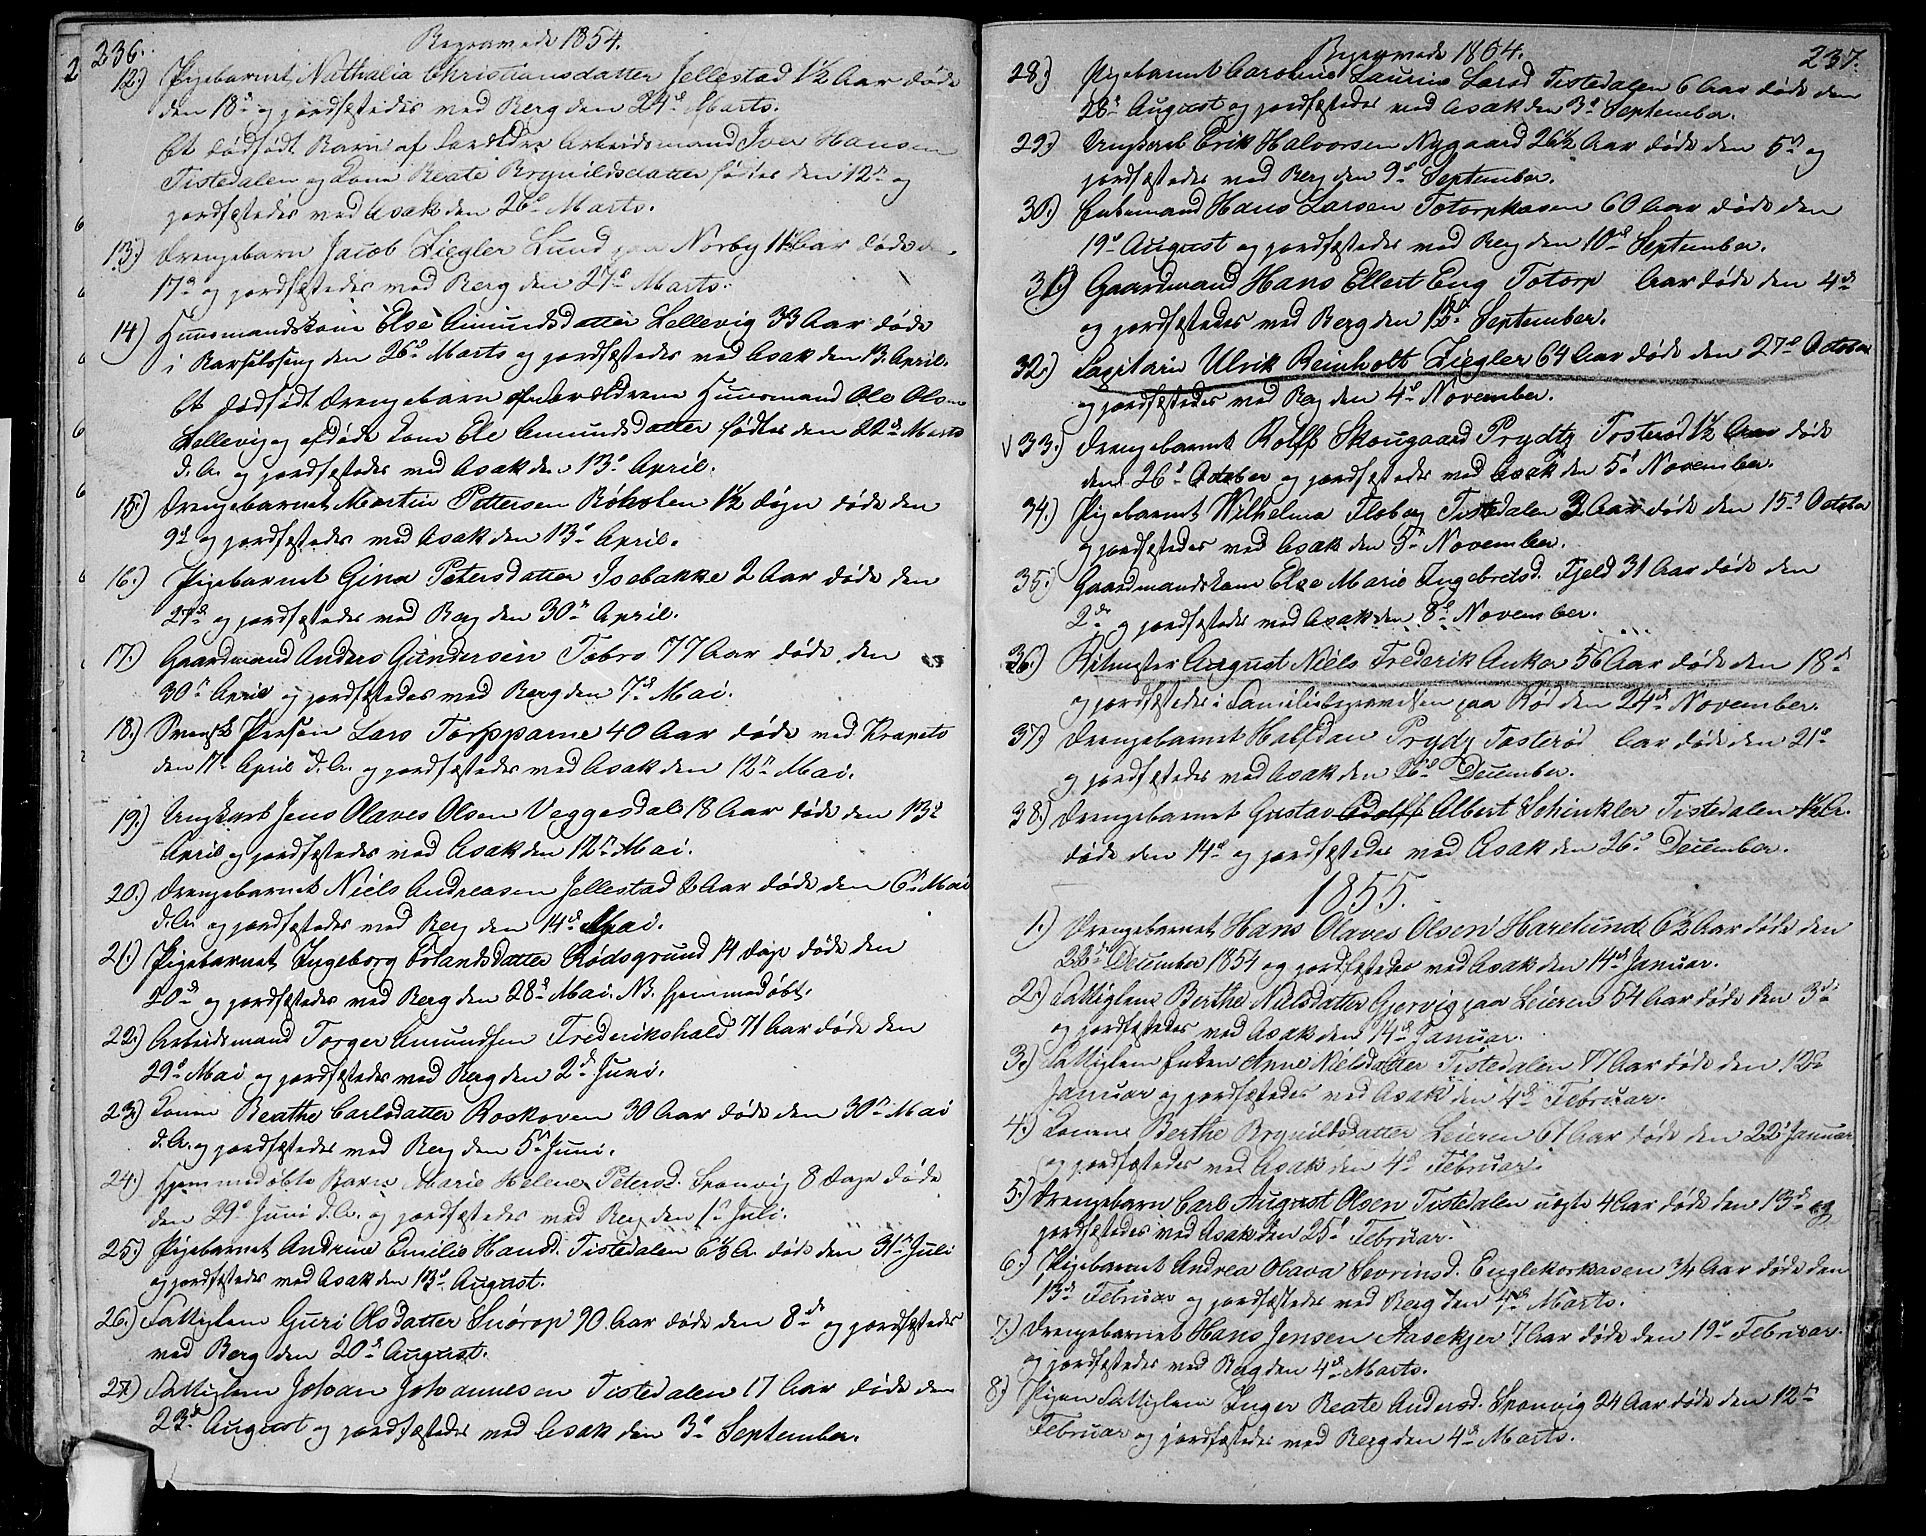 236.
Begravede 1854.
12.) Pigebarnet Nathalia Christiansdatter Jellestad 1½ Aar døde
den 18de og jordfæstedes ved Berg den 24de Marts.
Et dødfødt Barn af Forældre Arbeidsmand Iver Hansen
Tistedalen og Kone Beate Brynildsdatter fødtes den 12te og
jordfæstedes ved Asak den 26de Marts.
13.) Drengebarn Jacob Ziegler Lund paa Nørby Aar døde den
17de og jordfæstedes ved Berg den 27de Marts.
14.) Huusmandskone Else Amundsdatter Lellevig 33 Aar døde
i Barselseng den 26de Marts og jordfæstedes ved Asak den 13. April.
Et dødfødt Drengebarn af Forældrene Huusmand Ole Olsen
Lellevig og afdøde Kone Else Amundsdatter fødtes den 22de Marts
d.A. og jordfæstedes ved Asak den 13de April.
15.) Drengebarnet Martin Pettersen Røholen 1½ Døgn døde den
9de og jordfæstedes ved Asak den 13de April.
16.) Pigebarnet Gina Petersdatter Isebakke 2 Aar døde den
27de og jordfæstedes ved Berg den 30te April.
17.) Gaardmand Anders Gundersen Tobro 77 Aar døde den
30te April og jordfæstedes ved Berg den 7de Mai.
18.) Svensk Person Lars Torpparne 40 Aar døde ved Krapeto
den 17de April d.A. og jordfæstedes ved Asak den 12te Mai.
19.) Ungkarl Jens Olaves Olsen Veggesdal 18 Aar døde den 13de
April og jordfæstedes ved Asak den 12te Mai.
20.) Drengebarnet Niels Andreasen Jellestad 2 Aar døde den 6te Mai
d.A. og jordfæstedes ved Berg den 14de Mai.
21.) Pigebarnet Ingeborg Erlandsdatter Rødsgrund 14 Dage døde den
20de og jordfæstedes ved Berg den 28de Mai. NB. hjemmedøbt.
22.) Arbeidsmand Torger Amundsen Frederikshald 71 Aar døde den
29de Mai og jordfæstedes ved Berg den 2de Juni.
23.) Konen Beathe Carlsdatter Roskoven 30 Aar døde den 30te Mai
d.A. og jordfæstedes ved Berg den 5te Juni.
24.) Hjemmedøbte Barn Marie Helene Petersd. Sponvig 8 Dage døde
den 29de Juni d.A. og jordfæstedes ved Berg den 1ste Juli.
25.) Pigebarnet Andrine Emilie Hansd. Tistedalen 6½ A. døde den 31te Juli
og jordfæstedes ved Asak den 13de August.
26.) Fattiglem Guri Olsdatter Snørop 90 Aar døde den 8de og jordfæstedes
ved Berg den 20de August.
27.) Fattiglem Johan Johannesen Tistedalen 17 Aar døde den
23de August og jordfæstedes ved Asak den 3de September.
Begravede 1854.
237.
28.) Pigebarnet Caroline Laurine Larsd. Tistedalen 6 Aar døde den
28de August og jordfæstedes ved Asak den 3de September.
29.) Ungkarl Erik Halvorsen Nygaard 26½ Aar døde den 5te og
jordfæstedes ved Berg den 9de September.
30.) Enkemand Hans Larsen Totorpkasen 60 Aar døde den
19de August og jordfæstedes ved Berg den 10de September.
31.) Gaardmand Hans Ellert Eng Totorp Aar døde den 4de
og jordfæstedes ved Berg den September.
32.) Capitain Ulrik Reinholt Ziegler 64 Aar døde den 27de October
og jordfæstedes ved Berg den 4de November.
33.) Drengebarnet Rolff Skougaard Prydtz Tosterød 1½ Aar døde
den 26de October og jordfæstedes ved Asak den 5te November.
34.) Pigebarnet Wilhelma Floberg Tistedalen 3 Aar døde den 15de October
og jordfæstedes ved Asak den 5te November.
35.) Gaardmandskone Else Marie Ingebretsd. Fjeld 31 Aar døde den
2de og jordfæstedes ved Asak den 8de November.
36.) Ritmester August Niels Frederik Anker 56 Aar døde den 18de
og jordfæstedes i Familiebegravelsen paa Rød den 24de November.
37.) Drengebarnet Halfdan Prydz Tosterød Aar døde den 21de
og jordfæstedes ved Asak den 26de December.
38.) Drengebarnet Gustav Adolff Albert Schinkler Tistedalen A.
døde den 14de og jordfæstedes ved Asak den 26de December.
1855.
1.) Drengebarnet Hans Olaves Olsen Harelund 6½ Aar døde den
22de December 1854 og jordfæstedes ved Asak den 14de Januar.
2.) Fattiglem Berthe Nielsdatter Gjervig paa Leieren 54 Aar døde den 3de
og jordfæstedes ved Asak den 14de Januar.
3.) Fattiglem Enken Anne Nielsdatter Tistedalen 77 Aar døde den 12te
Januar og jordfæstedes ved Asak den 4de Februar.
4.) Konen Berthe Brynildsdatter Leieren 67 Aar døde den 22de Januar
og jordfæstedes ved Asak den 4de Februar.
5.) Drengebarn Carl August Olsen Tistedalen uægte 4 Aar døde den 13de og
jordfæstedes ved Asak den 25de Februar.
6.) Pigebarnet Andrea Olava Sevrinsd. Englekorkasen 3/4 Aar døde den
13de Februar og jordfæstedes ved Berg den 4de Marts.
7.) Drengebarnet Hans Jensen Aasekjer 7 Aar døde den 19de Februar
og jordfæstedes ved Berg den 4de Marts.
8.) Pigen Fattiglem Inger Beate Andersd. Sponvig 24 Aar døde den 12te
Februar og jordfæstedes ved Berg den 4de Marts.